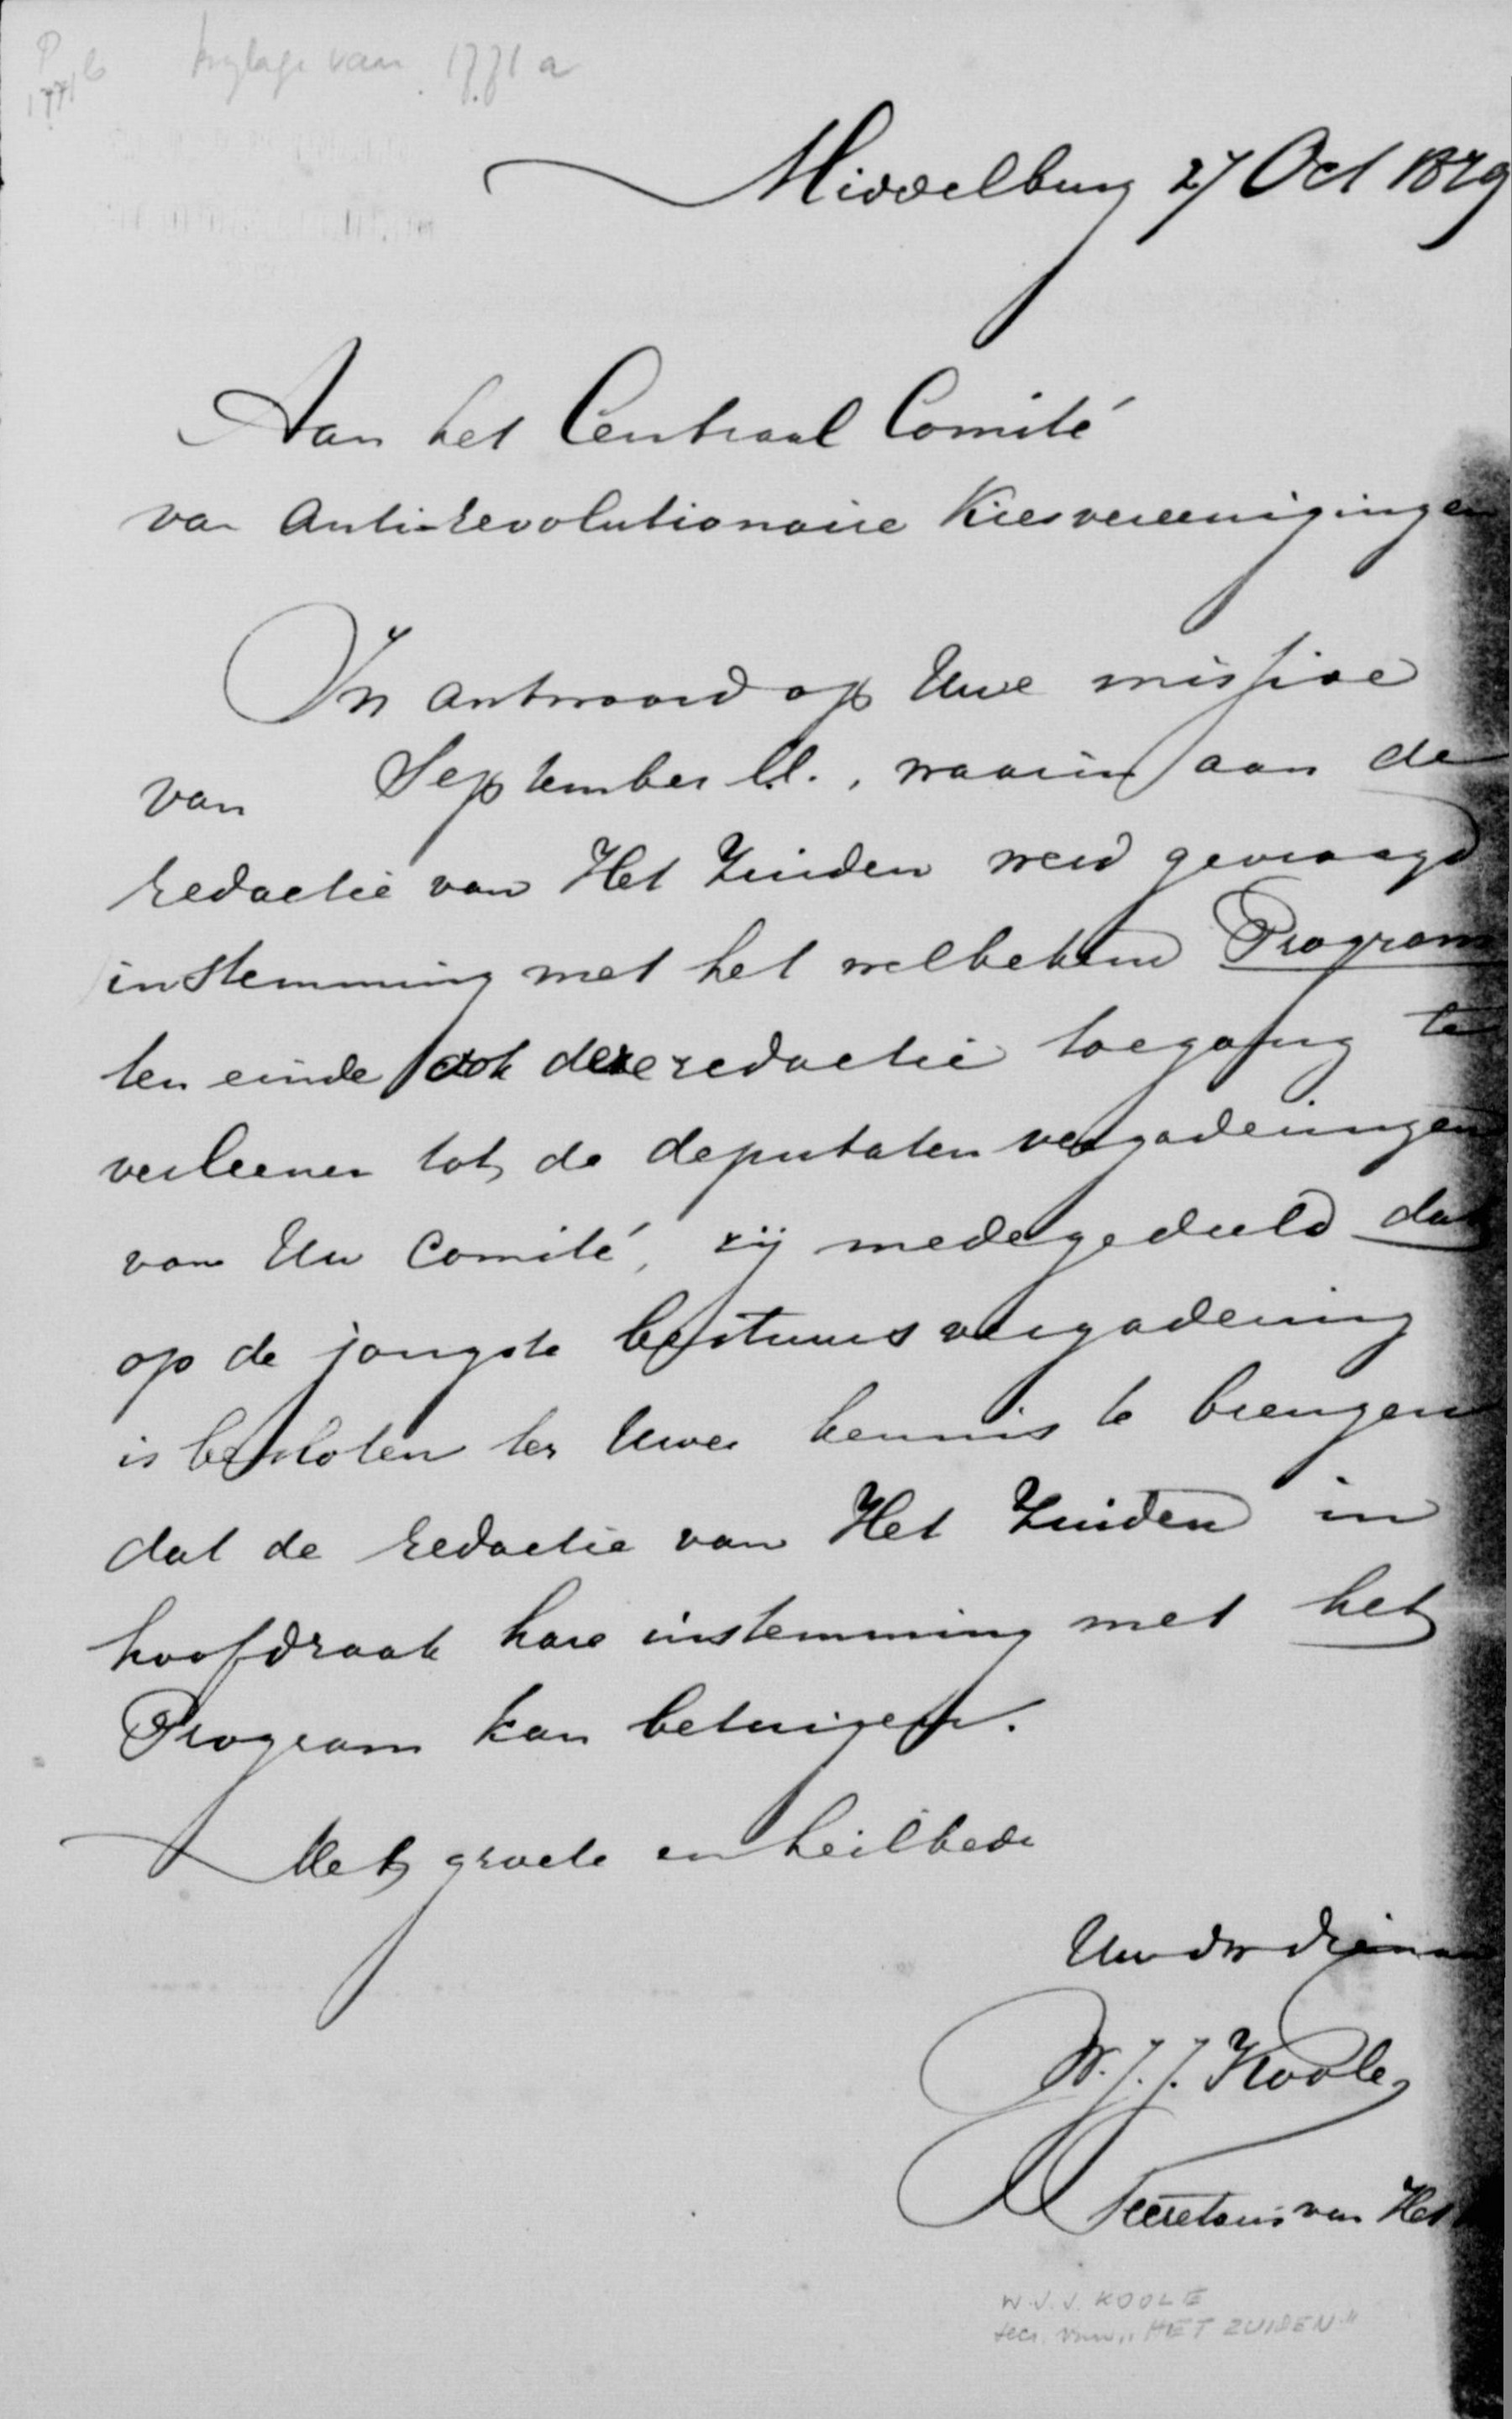 P 1771 b bijlage van 1771 a
Middelburg 27 Oct 1879
Aan het Centraal Comité
van Anti-revolutionaire Kiesvereenigingen
In antwoord op Uwe missive
van September l.l., waarin aan de
redactie van Het Zuiden werd gevraagd
instemming met het welbekend Program
ten einde ook deze redactie toegang te
verleenen tot de deputatenvergaderingen
van Uw Comité, zij medegedeeld dat
op de jongste bestuursvergadering
is besloten ter Uwer kennis te brengen
dat de redactie van Het Zuiden in
hoofdzaak hare instemming met het
Program kan betuigen.
Met groete en heilbede
Uw dw dienaar
W. J. J. Koole,
Secretaris van Het
W. J. J. KOOLE
secr. van „HET ZUIDEN"